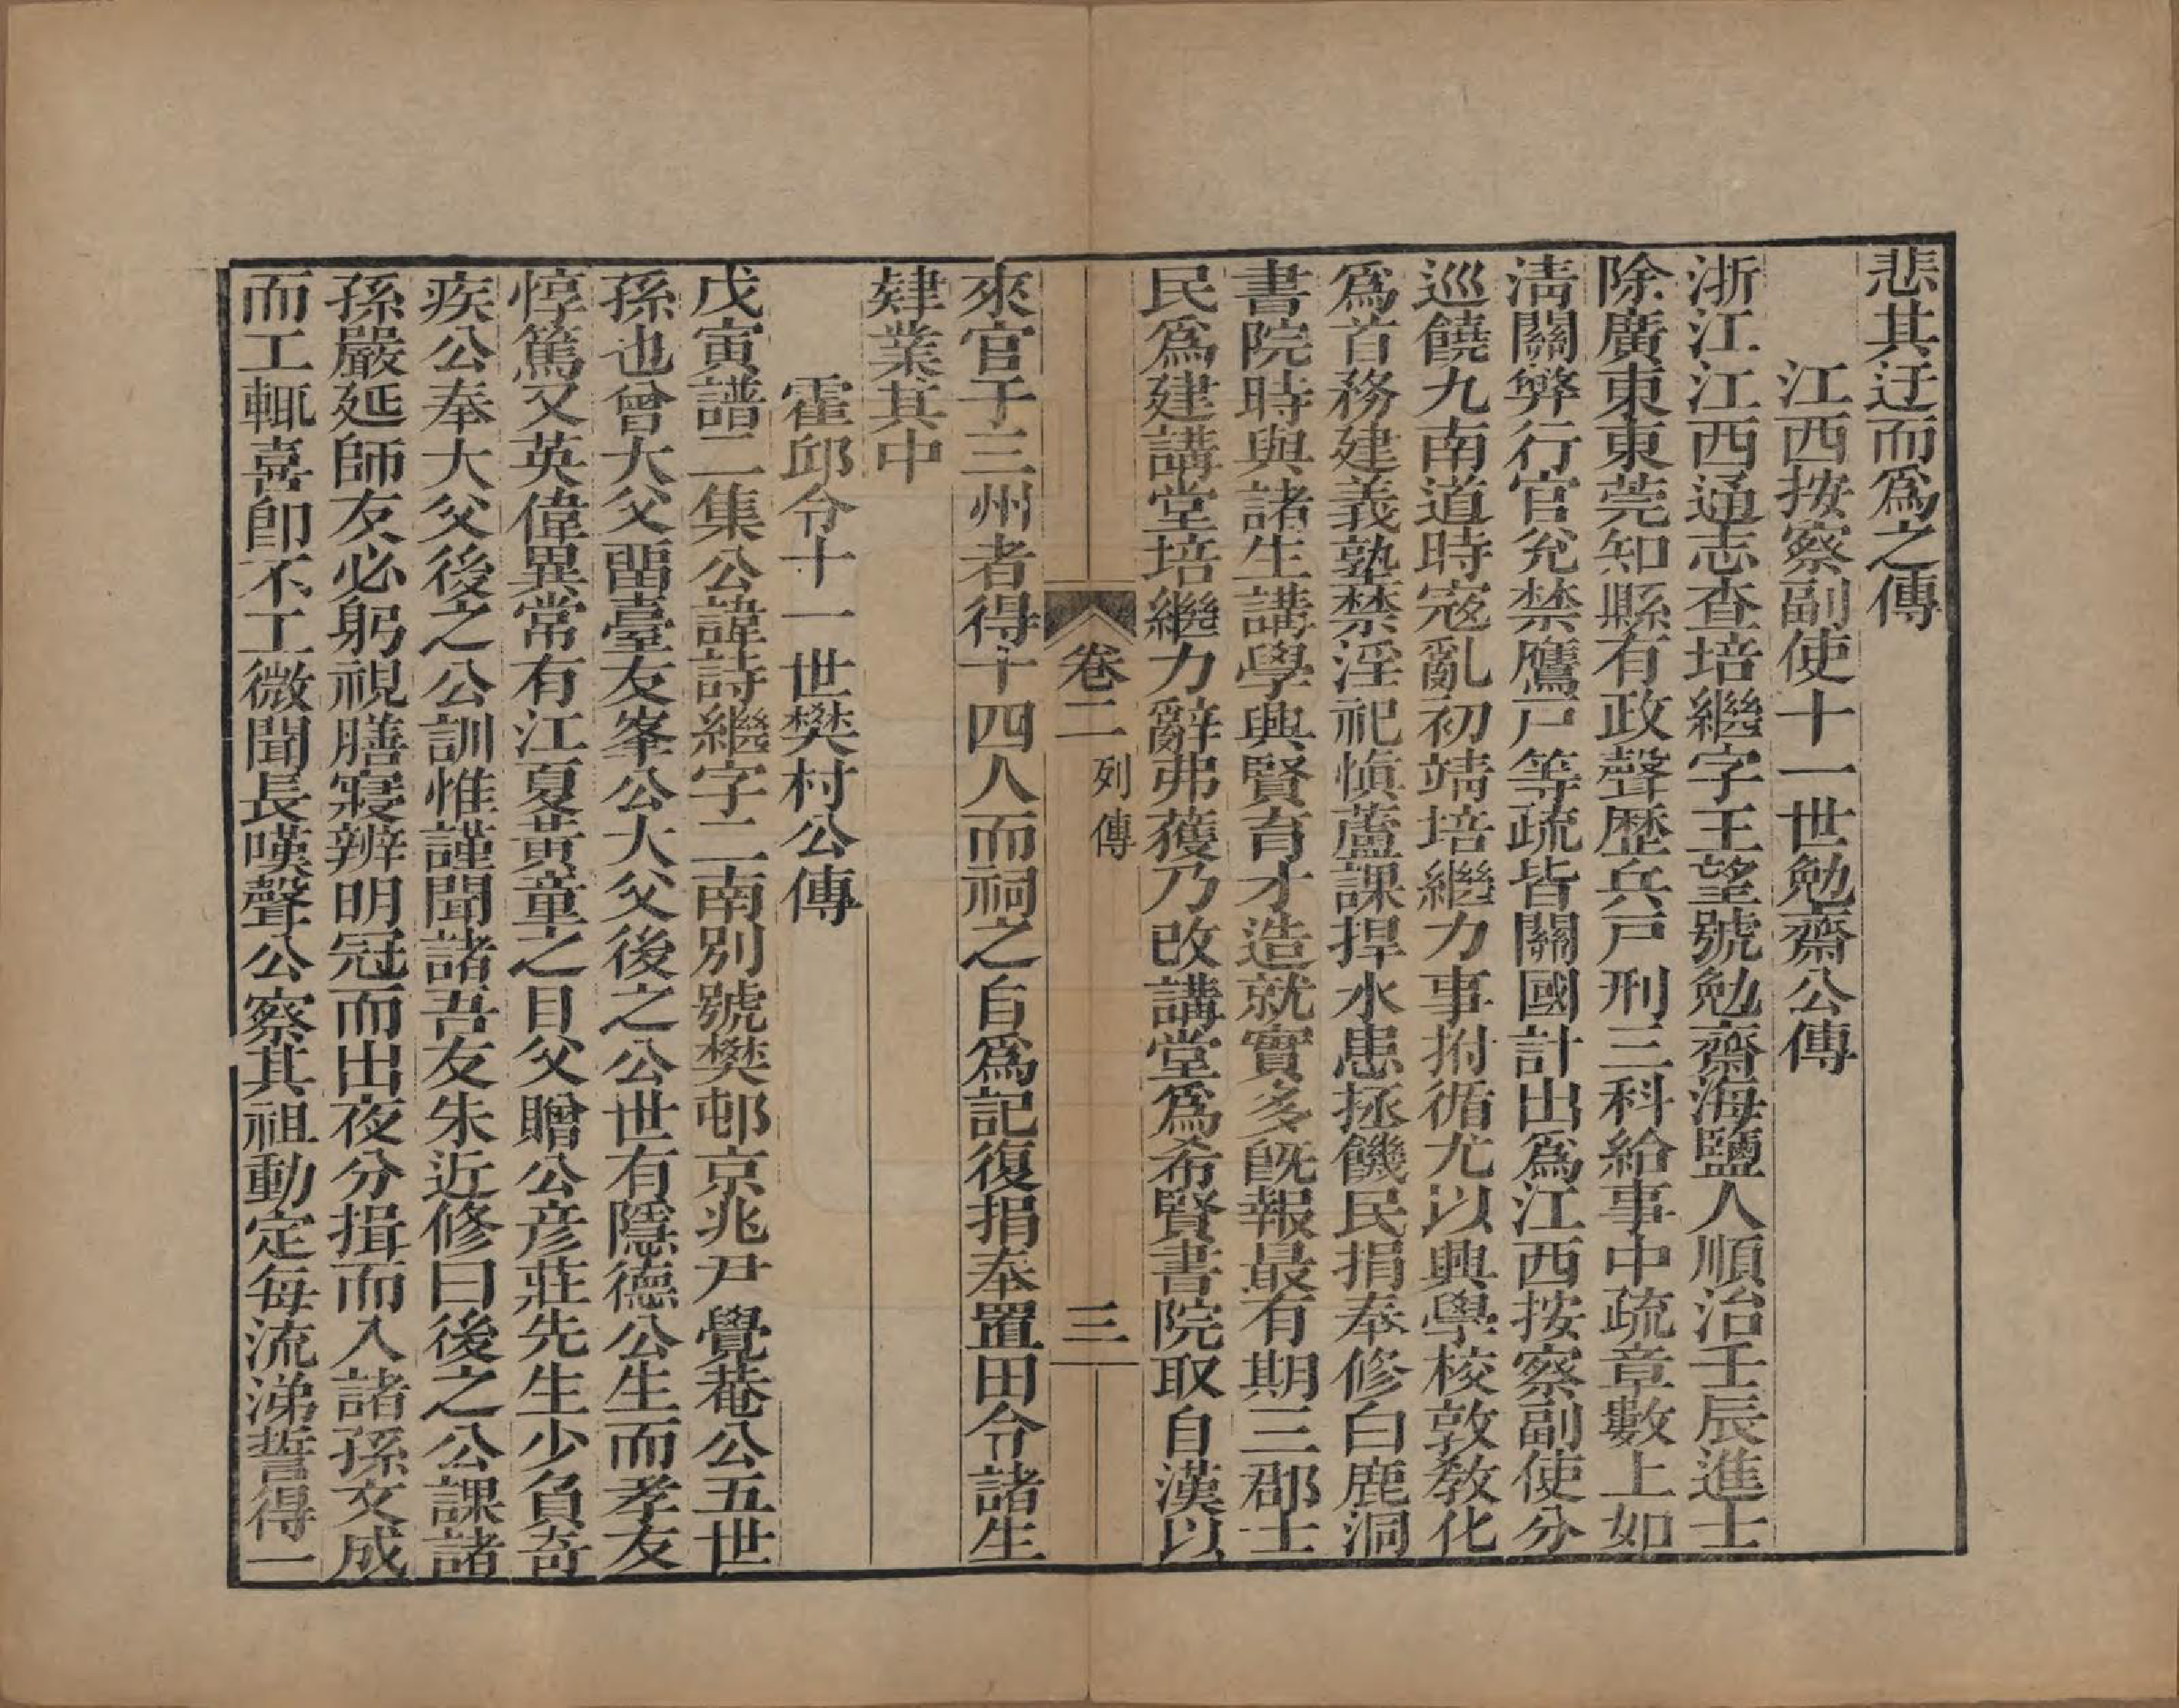 悲其迂而爲之傳
江西按察副使十一世勉齋公傳
浙江江西通志查培繼字王望號勉齋海鹽人順治壬辰進士
除廣東東莞知縣有政聲歷兵戸刑三科給事中疏章數上如
淸關弊行官兊禁鷹戸等疏皆關國計出爲江西按察副使分
巡饒九南道時宼亂初靖培繼力事拊循尤以興學校敦敎化
爲首務建義塾禁淫祀愼蘆課捍水患拯饑民捐奉修白鹿洞
書院時與諸生講學興賢育才造就實多旣報最有期三郡士
民爲建講堂培繼力辭弗獲乃改講堂爲希賢書院取自漢以
卷二 列傳 三
來官于三州者得十四人而祠之自爲記復捐奉置田令諸生
肄業其中
霍邱令十一世樊村公傳
戊寅譜二集公諱詩繼字二南別號樊邨京兆尹覺菴公五世
孫也曾大父畱臺友峯公大父後之公世有隱德公生而孝友
惇篤又英偉異常有江夏黃童之目父贈公彦莊先生少負奇
疾公奉大父後之公訓惟謹聞諸吾友朱近修曰後之公課諸
孫嚴延師友必躬視膳寢辨明冠而出夜分揖而入諸孫文成
而工輒喜卽不工微聞長嘆聲公察其祖動定每流涕誓得一